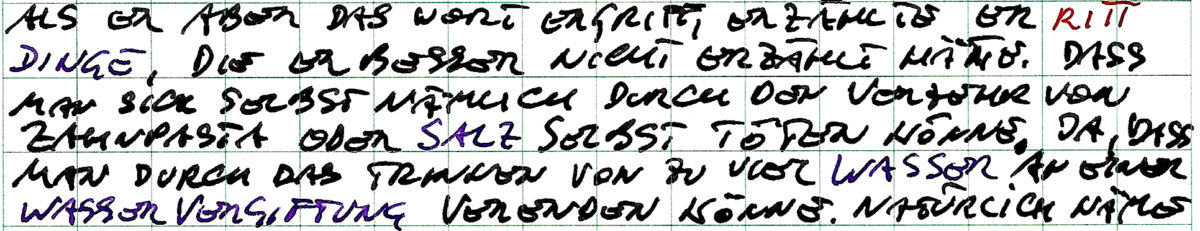 ALS ER ABER DAS WORT ERGRIFF, ERZÄHLTE ER
DINGE, DIE ER BESSER NICHT ERZÄHLT HÄTTE. DASS
MAN SICH SELBST NÄMLICH DURCH DEN VERZEHR VON
ZAHNPASTA ODER SALZ SELBST TÖTEN KÖNNE, JA, DASS
MAN DURCH DAS TRINKEN VON ZU VIEL WASSER AN EINER
WASSERVERGIFTUNG VERENDEN KÖNNE. NATÜRLICH NÄHME